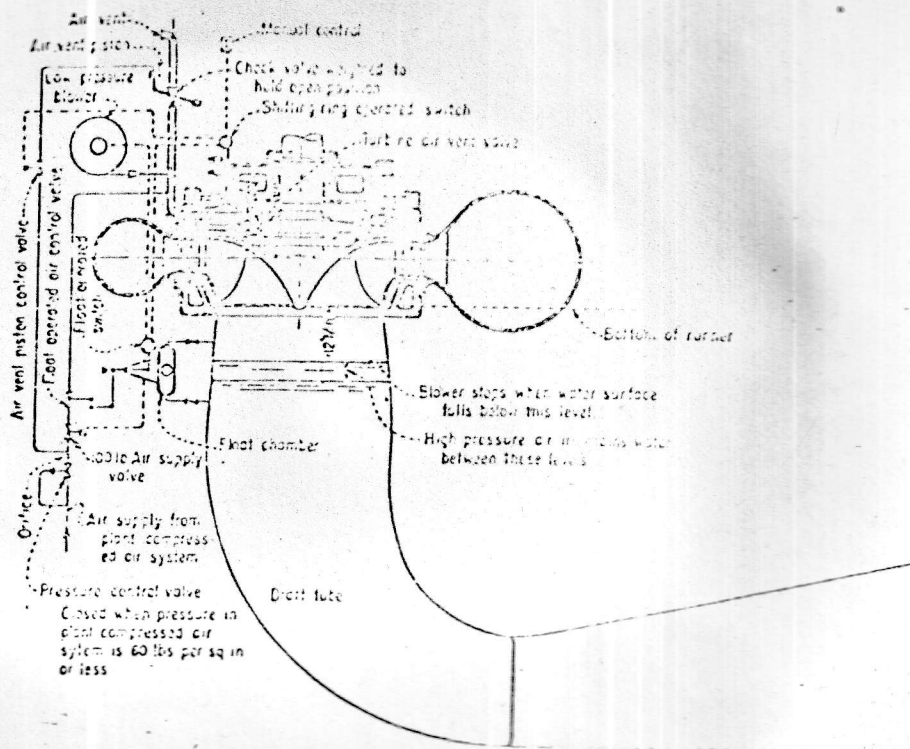 Air vent
Air vent piston
Low pressure
blower
Manual control
Check valve weighted to
hold open position
Shifting ring operated switch
Turbine air vent valve
Air vent piston control valve
Float operated air control valve
Float operated
switch
Bottom of runner
Blower stops when water surface
falls below this level
High pressure air maintains water
between these levels
Float chamber
Air supply
valve
Orifice
Air supply from
plant compress-
ed air system
Pressure control valve
Closed when pressure in
plant compressed air
system is 60 lbs per sq in
or less
Draft tube